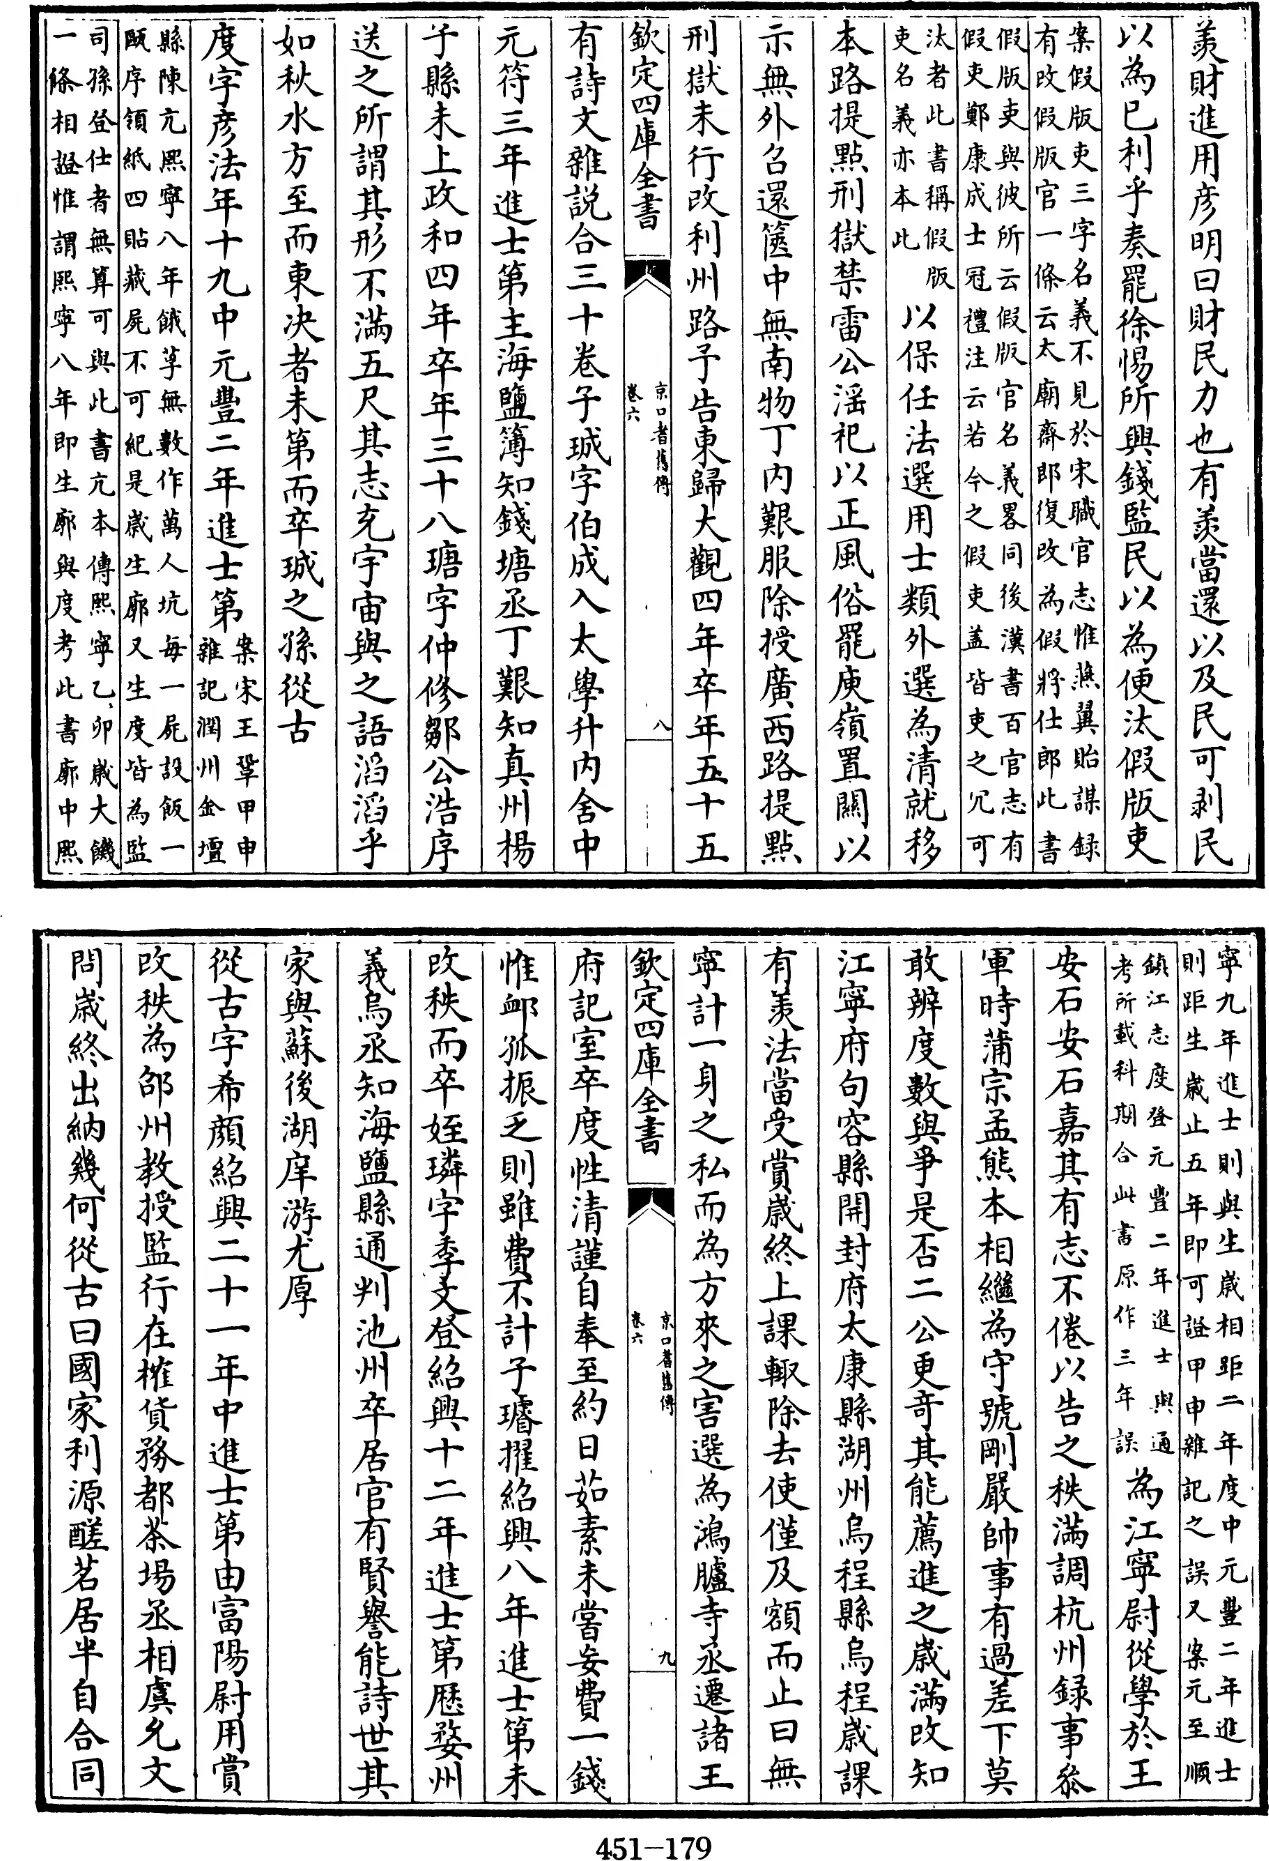 羨財進用彦明曰財民力也有羨當還以及民可剥民
以為已利乎奏罷徐惕所興錢監民以為便汰假版吏
案假版吏三字名義不見於宋職官志惟燕翼貽謀録
有改假版官一條云太廟齋郎復改為假將仕郎此書
假版吏與彼所云假版官名義畧同後漢書百官志有
假吏鄭康成士冠禮注云若今之假吏盖皆吏之冗可
汰者此書稱假版
吏名義亦本此
以保任法選用士類外選為清就移
本路提點刑獄禁雷公滛祀以正風俗罷庾嶺置闗以
示無外召還篋中無南物丁内艱服除授廣西路提點
刑獄未行改利州路予告東歸大觀四年卒年五十五
欽定四庫全書
京口耆舊傳
卷六
八
有詩文雜説合三十卷子珹字伯成入太學升内舍中
元符三年進士第主海鹽簿知錢塘丞丁艱知真州楊
子縣未上政和四年卒年三十八瑭字仲修鄒公浩序
送之所謂其形不滿五尺其志充宇宙與之語滔滔乎
如秋水方至而東决者未第而卒珹之孫從古
度字彦法年十九中元豐二年進士第
案宋王鞏甲申
雜記潤州金壇
縣陳亢熙寧八年餓莩無數作萬人坑每一屍設飯一
甌序領紙四貼藏屍不可紀是歲生廓又生度皆為監
司孫登仕者無算可與此書亢本傳熙寧乙卯歲大饑
一條相證惟謂熙寧八年即生廓與度考此書廓中熙
寧九年進士則與生歲相距二年度中元豐二年進士
則距生歲止五年即可證甲申雜記之誤又案元至順
鎮江志度登元豐二年進士與通
考所載科期合此書原作三年誤
為江寧尉從學於王
安石安石嘉其有志不倦以告之秩滿調杭州録事叅
軍時蒲宗孟熊本相繼為守號剛嚴帥事有過差下莫
敢辨度數與爭是否二公更奇其能薦進之歲滿改知
江寧府句容縣開封府太康縣湖州烏程縣烏程歲課
有羨法當受賞歲終上課輙除去使僅及額而止曰無
寧計一身之私而為方來之害選為鴻臚寺丞遷諸王
欽定四庫全書
京口耆舊傳
卷六
九
府記室卒度性清謹自奉至約日茹素未嘗妄費一錢
惟䘏孤振乏則雖費不計子璿擢紹興八年進士第未
改秩而卒姪璘字季文登紹興十二年進士第歷婺州
義烏丞知海鹽縣通判池州卒居官有賢譽能詩世其
家與蘇後湖庠游尤厚
從古字希顔紹興二十一年中進士第由富陽尉用賞
改秩為邵州教授監行在榷貨務都茶場丞相虞允文
問歲終出納幾何從古曰國家利源醝茗居半自合同
451-179